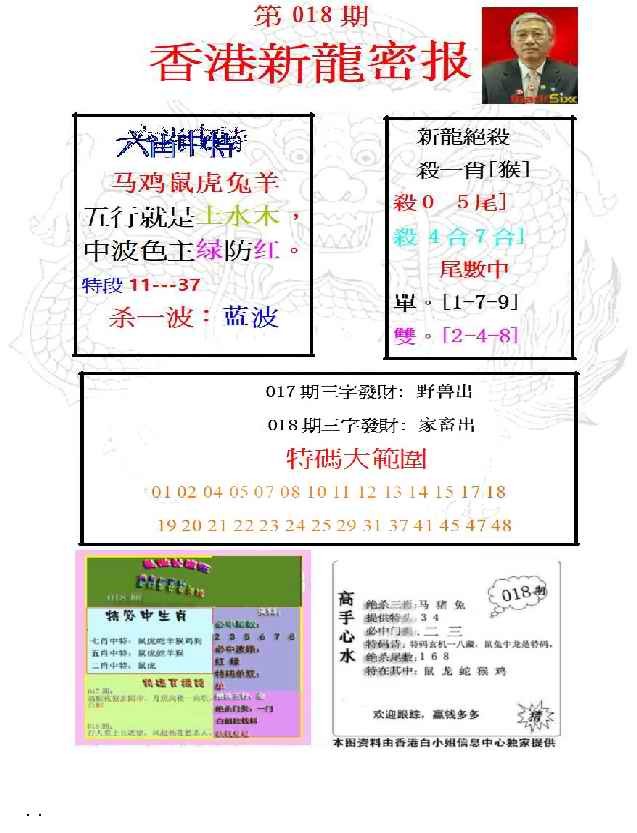 第 018 期
香港新龍密报
六肖中特
马鸡鼠虎兔羊
五行就是土水木，
中波色主绿防红。
特段 11---37
杀一波：蓝波
新龍絕殺
殺一肖[猴]
殺0 5尾]
殺 4合7合]
尾數中
單。[1-7-9]
雙。[2-4-8]
017 期三字發財: 野兽出
018 期三字發財: 家畜出
特碼大範圍
01 02 04 05 07 08 10 11 12 13 14 15 17 18
19 20 21 22 23 24 25 29 31 37 41 45 47 48
018 期
特势中生肖
七肖中特：鼠虎蛇羊猴鸡狗
五肖中特：鼠虎蛇羊猴
二肖中特：鼠虎
2 3 5 6 7 8
红 绿
018期
高手心水
绝杀三肖:马 猪 兔
提供特头 3 4
必中门类: 二 三
特码诗: 特码玄机一八藏, 鼠兔牛龙是特码,
绝杀尾数:1 6 8
特在其中: 鼠 龙 蛇 猴 鸡
欢迎跟踪, 赢钱多多
精
本图资料由香港白小姐信息中心独家提供